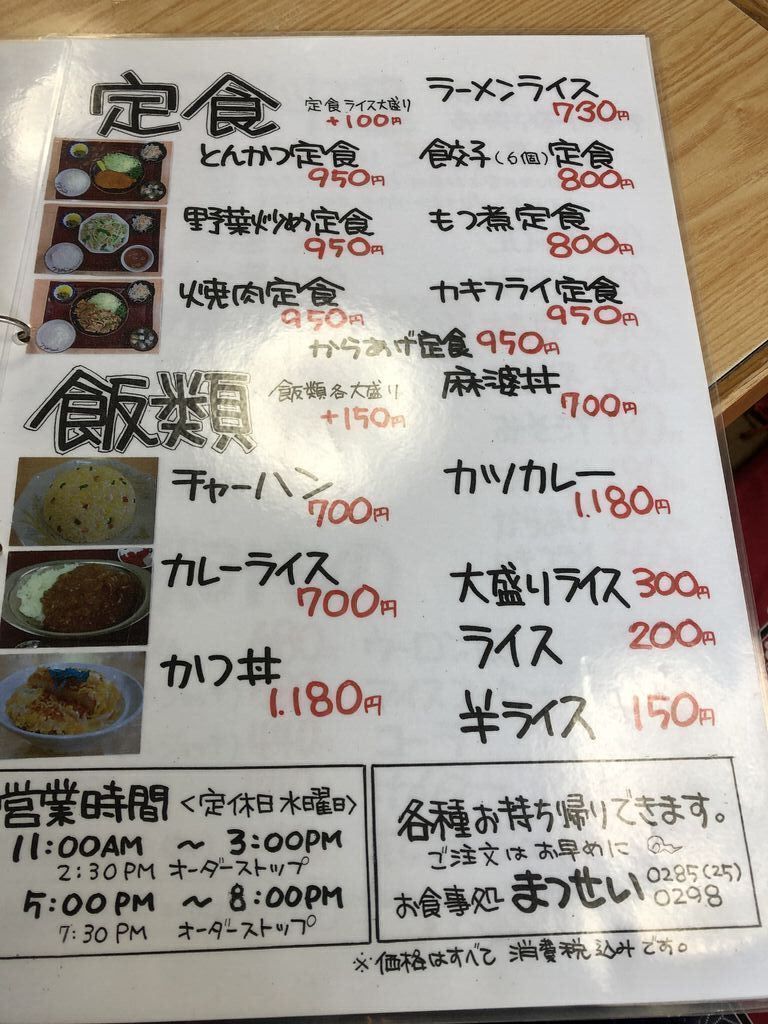 定食
定食ライス大盛り
+100円
ラーメンライス
730円
とんかつ定食
950円
餃子(6個)定食
800円
野菜炒め定食
950円
もつ煮定食
800円
焼肉定食
950円
カキフライ定食
950円
からあげ定食 950円
飯類
飯類各大盛り
+150円
麻婆丼
700円
チャーハン
700円
カツカレー
1.180円
カレーライス
700円
大盛りライス 300円
ライス 200円
かつ丼
1.180円
半ライス 150円
営業時間 <定休日 水曜日>
11:00AM ~ 3:00PM
2:30 PM オーダーストップ
5:00 PM ~ 8:00PM
7:30 PM オーダーストップ
各種お持ち帰りできます。
ご注文はお早めに
お食事処 まつせい 0285(25)
0298
※価格はすべて 消費税込みです。